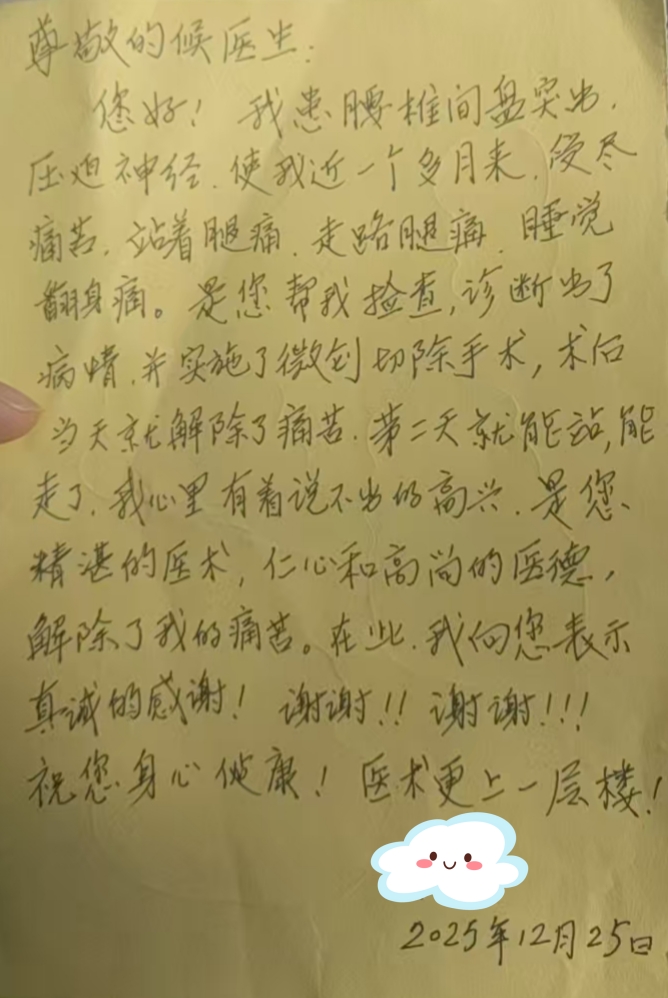 尊敬的候医生:
您好！我患腰椎间盘突出.
压迫神经.使我近一个多月来.受尽
痛苦.站着腿痛.走路腿痛.睡觉
翻身痛。是您帮我检查,诊断出了
病情.并实施了微创切除手术,术后
当天就解除了痛苦.第二天就能站,能
走了.我心里有着说不出的高兴.是您、
精湛的医术,仁心和高尚的医德,
解除了我的痛苦。在此.我向您表示
真诚的感谢！谢谢!!谢谢!!!
祝您身心健康！医术更上一层楼！
2025年12月25日